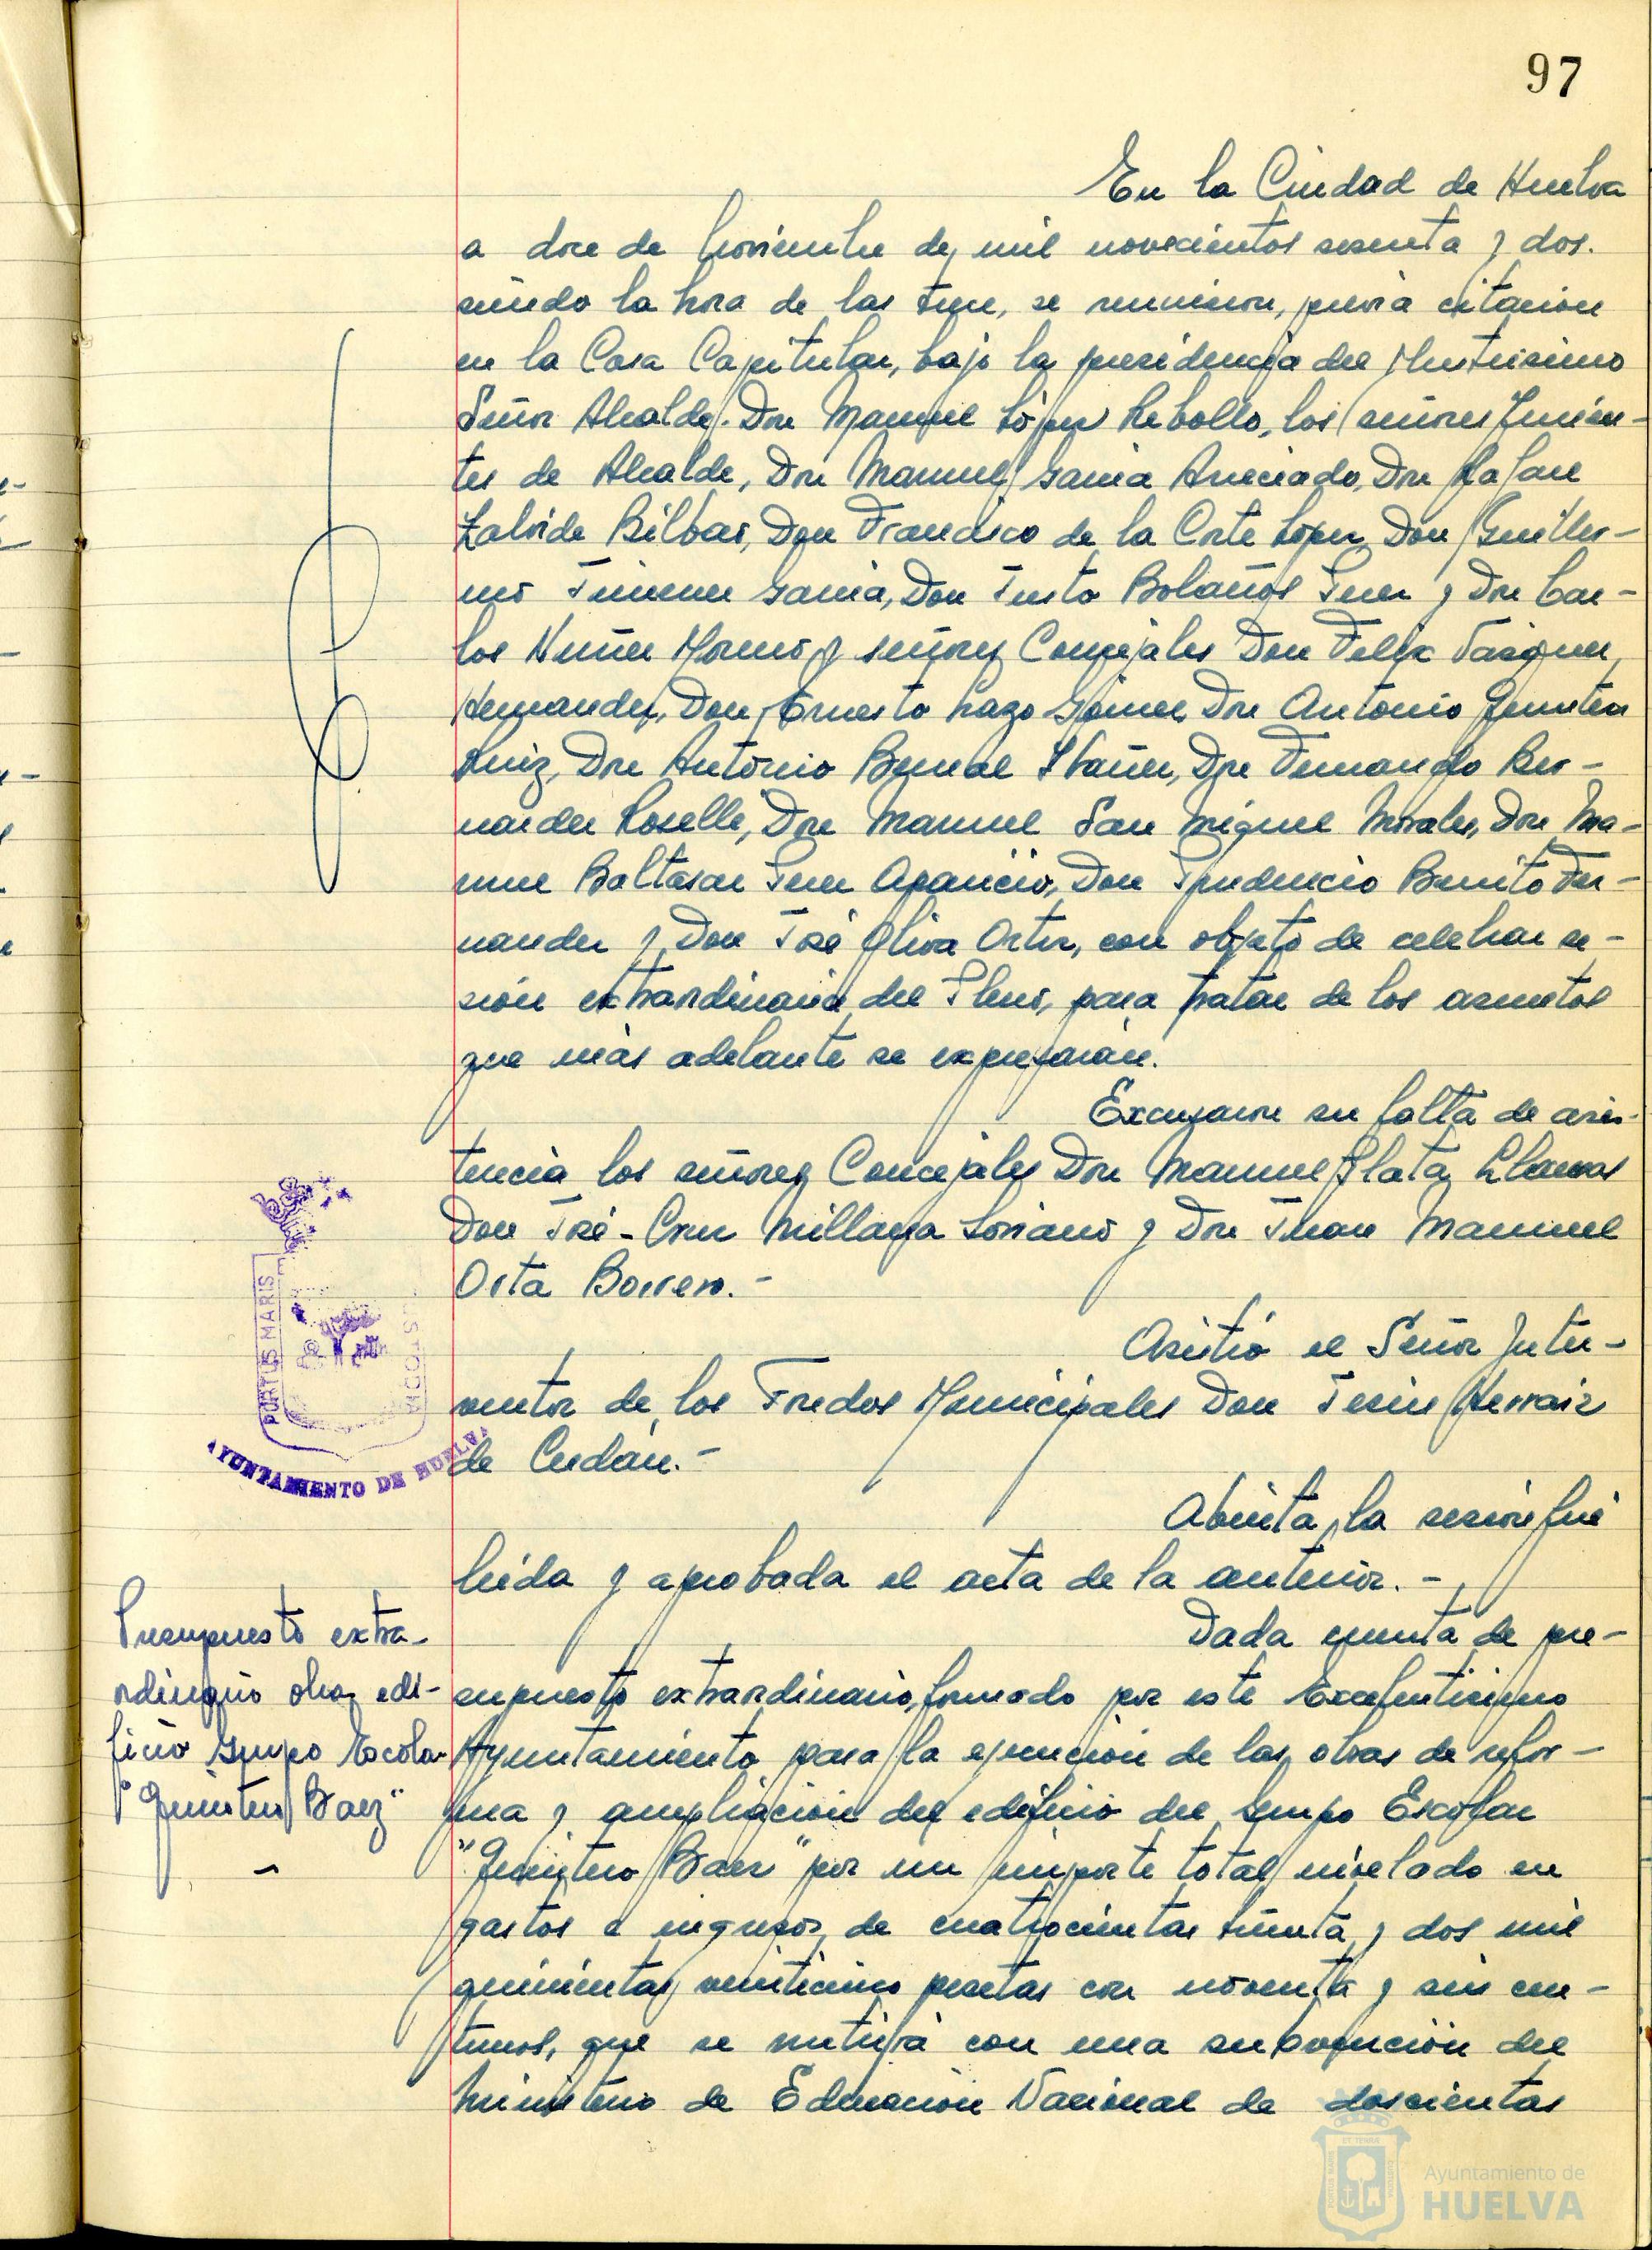 97
En la Ciudad de Huelva
a doce de Noviembre de mil novecientos sesenta y dos.
siendo la hora de las trece, se reunieron, previa citación
en la Casa Capitular, bajo la presidencia del Ilustrísimo
Señor Alcalde. Don Manuel López Rebollo, los señores Tenien-
tes de Alcalde, Don Manuel García Arreciado, Don Rafael
Zalvide Bilbao, Don Francisco de la Corte López, Don Guiller-
mo Jimenez García, Don Justo Bolaños Perez y Don Car-
los Nuñez Moreno y señores Concejales Don Felix Vazquez
Hernandez, Don Ernesto Lazo Gómez Don Antonio Quintero
Ruiz, Don Antonio Bernal Ibañez, Don Fernando Ber-
nardez Roselló, Don Manuel San Miguel Morales, Don Ma-
nuel Baltasar Perez Aparicio, Don Prudencio Benito Fer-
nandez y Don José Oliva Ortiz, con objeto de celebrar se-
sión extraordinaria del Pleno, para tratar de los asuntos
que más adelante se expresarán.
Excusaron su falta de asis-
tencia los señores Concejales Don Manuel Plata Llamas
Don José-Cruz Millaya Soriano y Don Juan Manuel
Orta Borrero.-
Asistió el Señor Inter-
ventor de los Fondos Municipales Don Herraiz
de Cerdán.-
Abierta la sesión fué
leída y aprobada el acta de la anterior.-
Presupuesto extra-
ordinario obras edi-
ficio Grupo Escolar
"Quintero Baez"
Dada cuenta de pre-
supuesto extraordinario, formado por este Excelentísimo
Ayuntamiento para la ejecución de las obras de refor-
ma y ampliación del edificio del Grupo Escolar
"Quintero Baez" por un importe total nivelado en
gastos e ingresos de cuatrocientas treinta y dos mil
quinientas veinticinco pesetas con noventa y seis cen-
timos, que se nutrirá con una subvención del
Ministerio de Educación Nacional de doscientas
PORTUS MARIS
CUSTODIA
AYUNTAMIENTO DE HUELVA
Ayuntamiento de
HUELVA